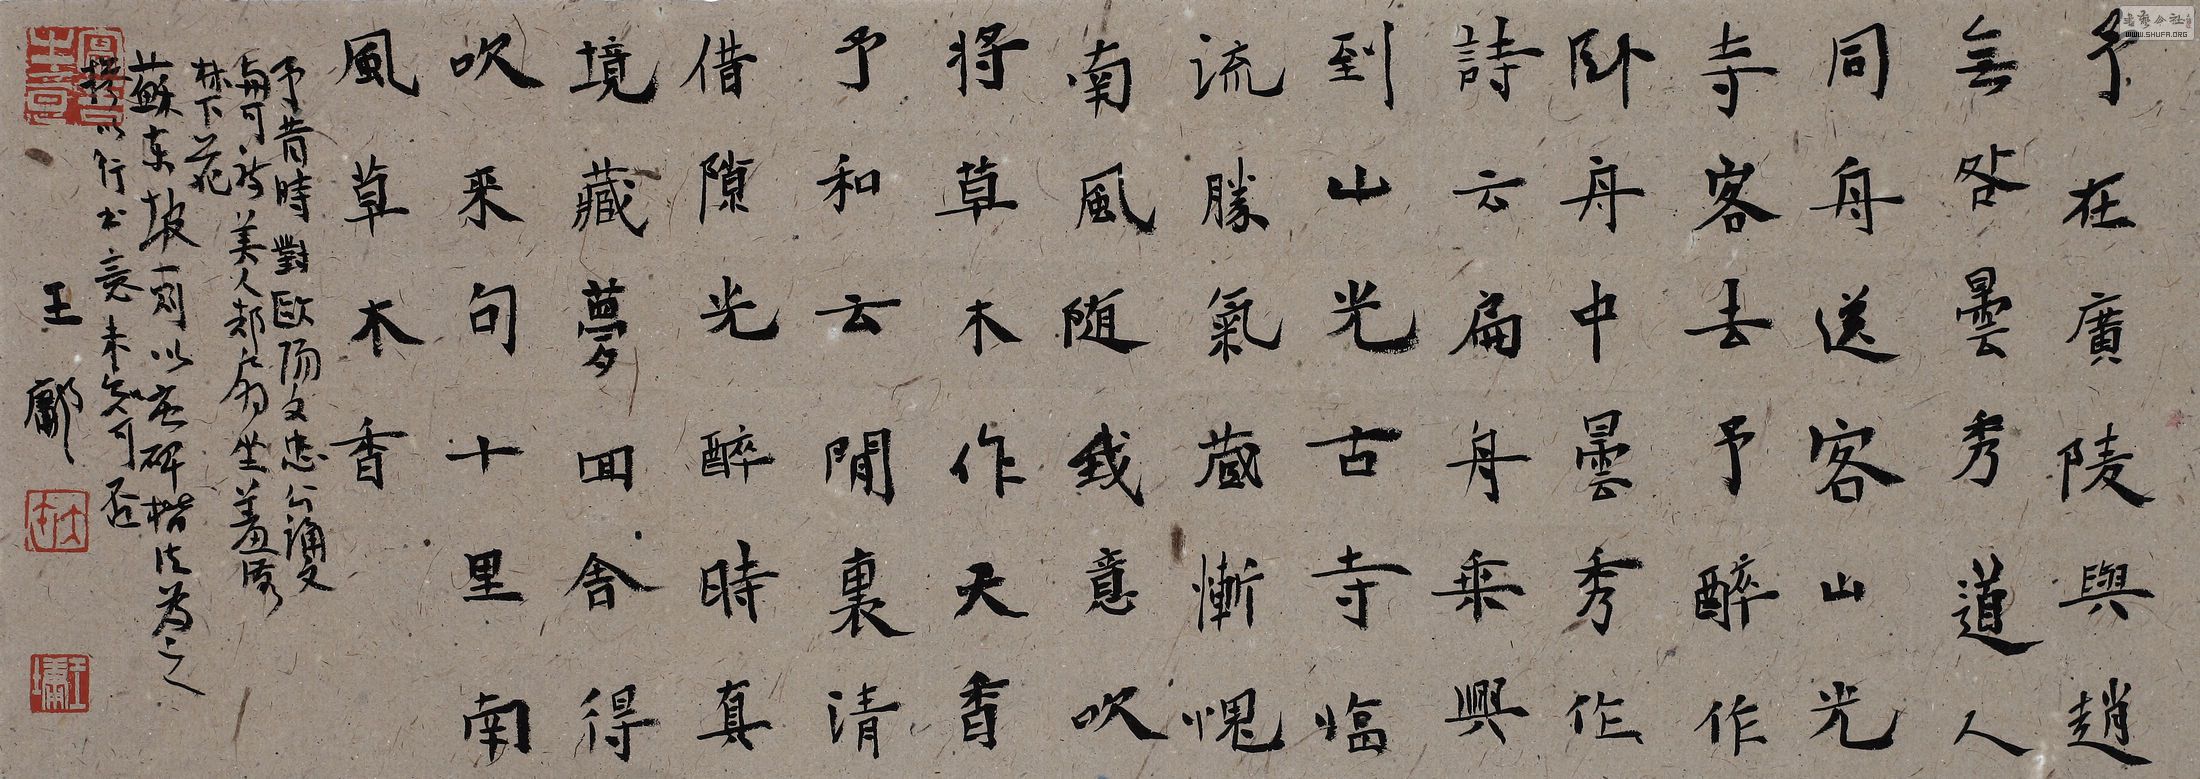 予在廣陵與趙
無咎曇秀道人
同舟送客山光
寺客去予醉作
卧舟中曇秀作
詩云扁舟乘興
到山光古寺临
流勝氣蔵慚愧
南風随我意吹
将草木作天香
予和云閒裏清
借隙光醉時真
境藏夢回舍得
吹来句十里南
風草木香
予昔時對歐陽文忠公誦文
與可詩美人却扇坐羞落
林下花
蘇東坡一則以玄碑楷法為之
以行书意未知可否
王
鄘
書藝公社
WWW.SHUFA.ORG